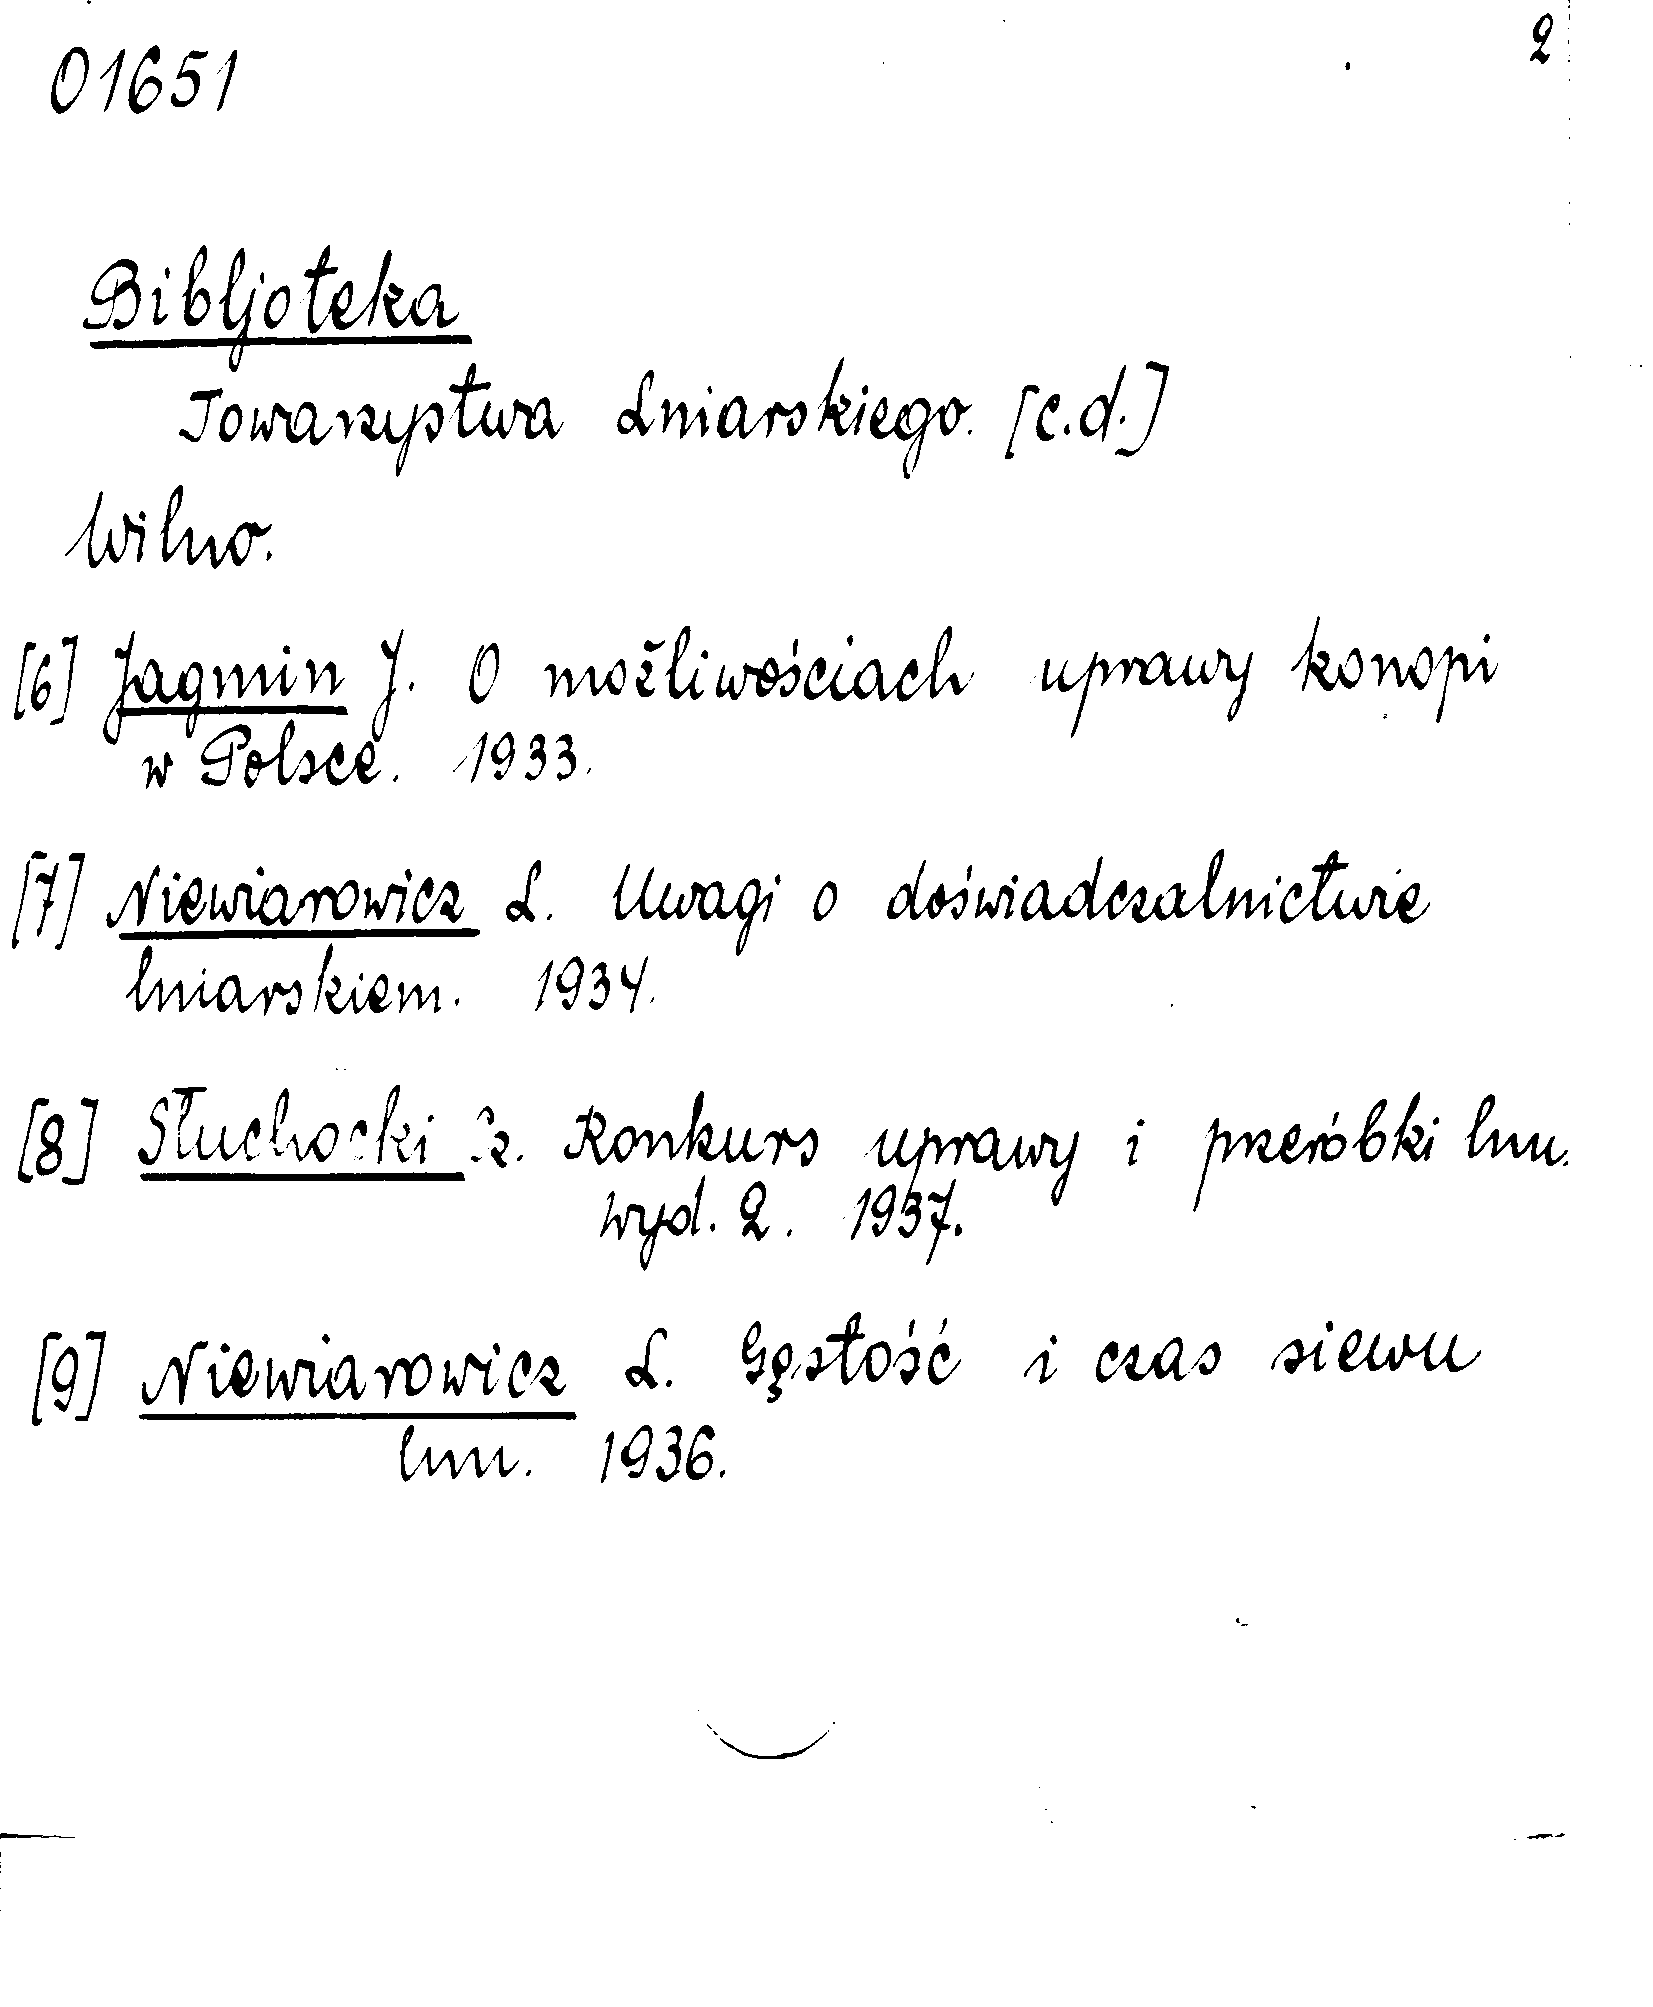 01651
2
Bibljoteka
Towarzystwa Lniarskiego. [c.d.]
Wilno.
[6] Jagmin J. O możliwościach uprawy konopi
w Polsce. 1933.
[7] Niewiarowicz L. Uwagi o doświadczalnictwie
lniarskiem. 1934.
[8] Słuchocki Cz. Konkurs uprawy i przeróbki lnu.
wyd. 2. 1937.
[9] Niewiarowicz L. Gęstość i czas siewu
lnu. 1936.